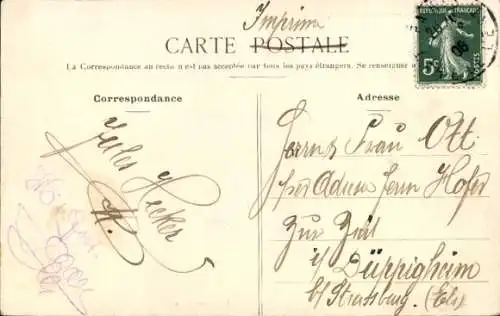 Imprimé
CARTE POSTALE
La Correspondance au recto n'est pas acceptée par tous les pays étrangers. Se renseigner
REPUBLIQUE FRANÇAISE
5c
POSTES
08
Correspondance
Adresse
Jules Hecker
Herrn & Frau Ott.
per Adresse Herrn Hofer
Zur Zeit
i/ Düppigheim
b/ Strassburg. (Els)